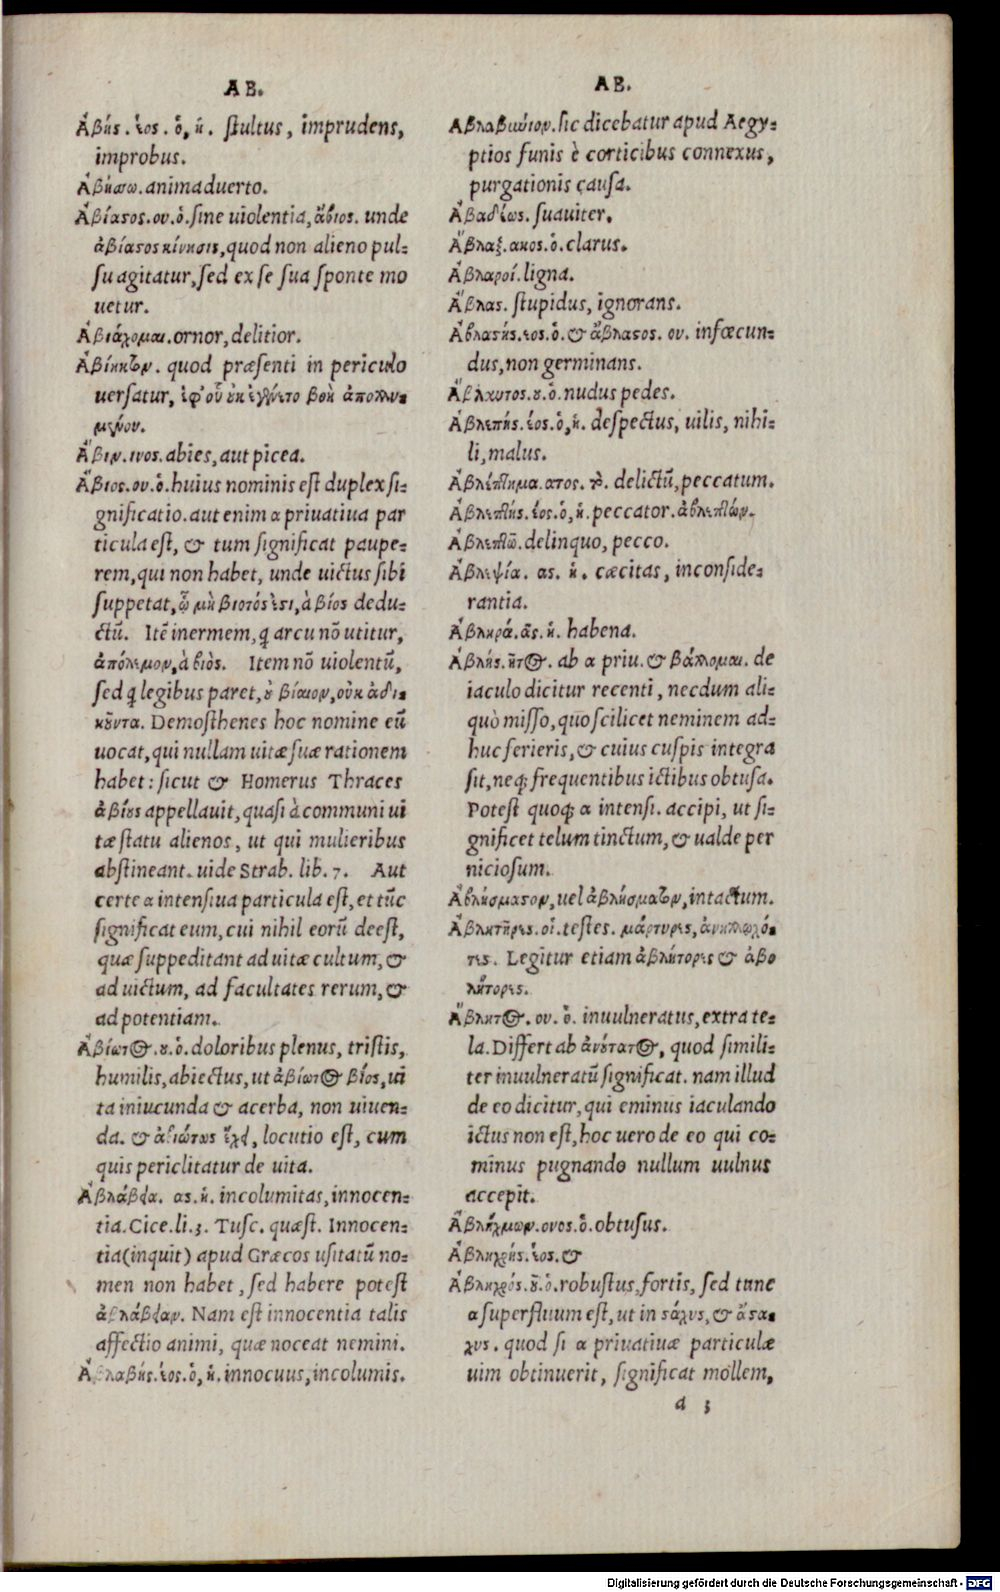 AB.
Ἀβὴς. έος. ὁ, ἡ. stultus, imprudens,
improbus.
Ἀβήσω. animaduerto.
Ἀβίαστος. ου. ὁ. sine uiolentia, ἄβιος. unde
ἀβίαστος κίνησις, quod non alieno pul=
su agitatur, sed ex se sua sponte mo
uetur.
ornor, delitior.
Ἀβίκητον. quod præsenti in periculo
uersatur, ἐφ' οὗ οὐκ ἐγένετο βοὴ ἀπολλυ=
μένου.
Ἄβιν. ινος. abies, aut picea.
Ἄβιος. ου. ὁ. huius nominis est duplex si=
gnificatio. aut enim α priuatiua par
ticula est, & tum significat paupe=
rem, qui non habet, unde uictus sibi
suppetat, ᾧ μὴ βιοτός ἐστι, ἀβίος dedu=
ctũ. Itẽ inermem, ꝗ arcu nõ utitur,
ἀπόλεμον, ἀβιὸς. Item nõ uiolentũ,
sed ꝗ legibus paret, οὐ βίαιον, οὐκ ἀδι=
κοῦντα. Demosthenes hoc nomine eũ
uocat, qui nullam uitæ suæ rationem
habet: sicut & Homerus Thraces
ἀβίους appellauit, quasi à communi ui
tæ statu alienos, ut qui mulieribus
abstineant. uide Strab. lib. 7. Aut
certe α intensiua particula est, et tũc
significat eum, cui nihil eorũ deest,
quæ suppeditant ad uitæ cultum, &
ad uictum, ad facultates rerum, &
ad potentiam.
Ἀβίωτος. ου. ὁ. doloribus plenus, tristis,
humilis, abiectus, ut ἀβίωτος βίος, ui
ta iniucunda & acerba, non uiuen=
da. & ἀβιώτως ἔχει, locutio est, cum
quis periclitatur de uita.
Ἀβλάβεια. ας. ἡ. incolumitas, innocen=
tia. Cice. li. 3. Tusc. quæst. Innocen=
tia (inquit) apud Græcos usitatũ no=
men non habet, sed habere potest
ἀβλάβειαν. Nam est innocentia talis
affectio animi, quæ noceat nemini.
Ἀβλαβής. έος. ὁ, ἡ. innocuus, incolumis.
AB.
sic dicebatur apud Aegy=
ptios funis è corticibus connexus,
purgationis causa.
Ἀβαδέως. suauiter.
Ἄβλαξ. ακος. ὁ. clarus.
Ἀβλαροί. ligna.
Ἄβλας. stupidus, ignorans.
Ἀβλαστής. έος. ὁ. & ἄβλαστος. ου. infœcun=
dus, non germinans.
Ἄβλαυτος. ου. ὁ. nudus pedes.
Ἀβλεπής. έος. ὁ, ἡ. despectus, uilis, nihi=
li, malus.
Ἀβλέπτημα. ατος. τὸ. delictũ, peccatum.
Ἀβλεπτής. έος. ὁ, ἡ. peccator. ἀβλεπτῶν.
Ἀβλεπτῶ. delinquo, pecco.
Ἀβλεψία. ας. ἡ. cæcitas, inconside=
rantia.
Ἀβληρά. ᾶς. ἡ. habena.
Ἀβλής. ῆτος. ab α priu. & βάλλομαι. de
iaculo dicitur recenti, necdum ali=
quò misso, quo scilicet neminem ad=
huc ferieris, & cuius cuspis integra
sit, neqꝫ frequentibus ictibus obtusa.
Potest quoqꝫ α intensi. accipi, ut si=
gnificet telum tinctum, & ualde per
niciosum.
Ἀβλήσμαστον, uel ἀβλήσματον, intactum.
Ἀβλητῆρες. οἱ. testes. μάρτυρες,
τες. Legitur etiam ἀβλήτορες & ἀβο
λήτορες.
Ἄβλητος. ου. ὁ. inuulneratus, extra te=
la. Differt ab ἀνούτατος, quod simili=
ter inuulneratũ significat. nam illud
de eo dicitur, qui eminus iaculando
ictus non est, hoc uero de eo qui co=
minus pugnando nullum uulnus
accepit.
Ἀβλήχμων. ονος. ὁ. obtusus.
Ἀβληχρής. έος. &
Ἀβληχρός. οῦ. ὁ. robustus, fortis, sed tunc
α superfluum est, ut in στάχυς, & ἄστα=
χυς. quod si α priuatiuæ particulæ
uim obtinuerit, significat mollem,
a 3
Digitalisierung gefördert durch die Deutsche Forschungsgemeinschaft - DFG